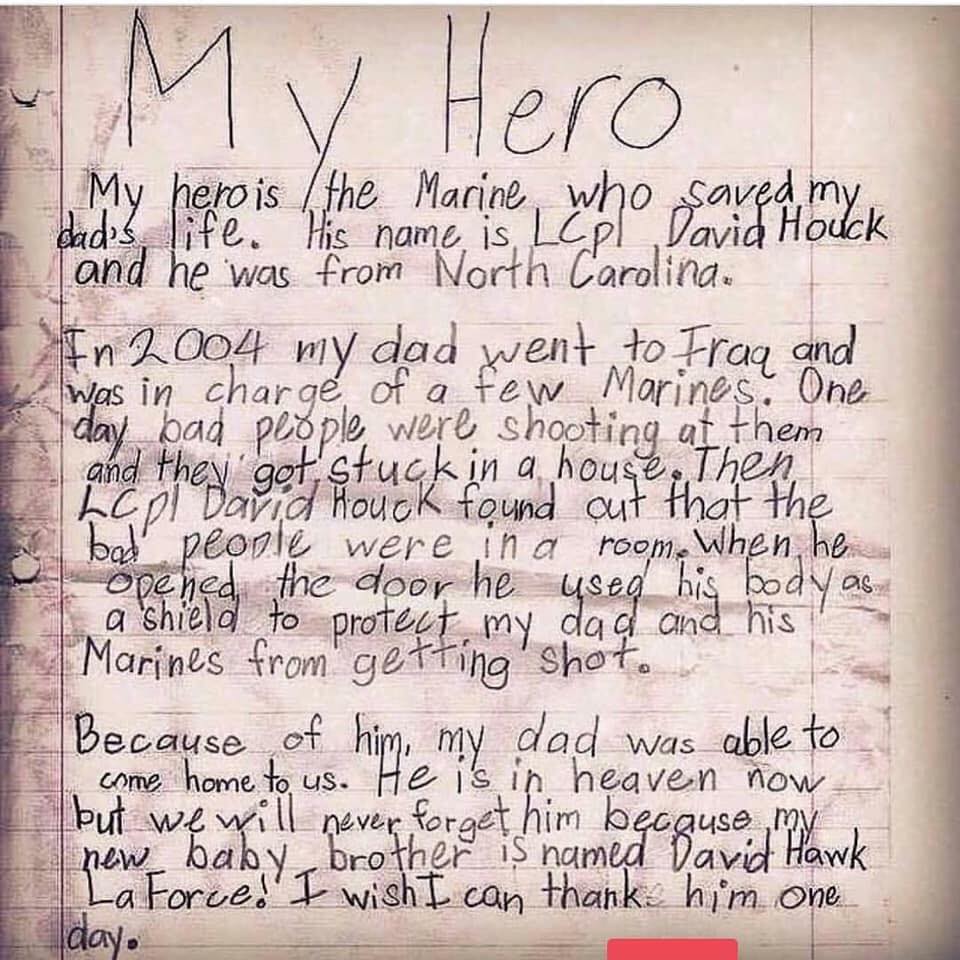 My Hero
My hero is the Marine who saved my
dad's life. His name is LCpl David Houck
and he was from North Carolina.
In 2004 my dad went to Iraq and
was in charge of a few Marines. One
day bad people were shooting at them
and they got stuck in a house. Then
LCpl David Houck found out that the
bad people were in a room. When he
opened the door he used his body as
a shield to protect my dad and his
Marines from getting shot.
Because of him, my dad was able to
come home to us. He is in heaven now
but we will never forget him because my
new baby brother is named David Hawk
LaForce! I wish I can thank him one
day.